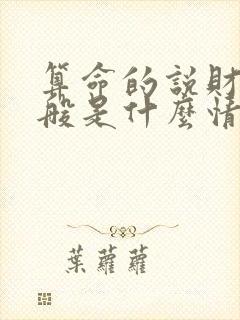 算命的説財
般是什麼情
葉蘿蘿